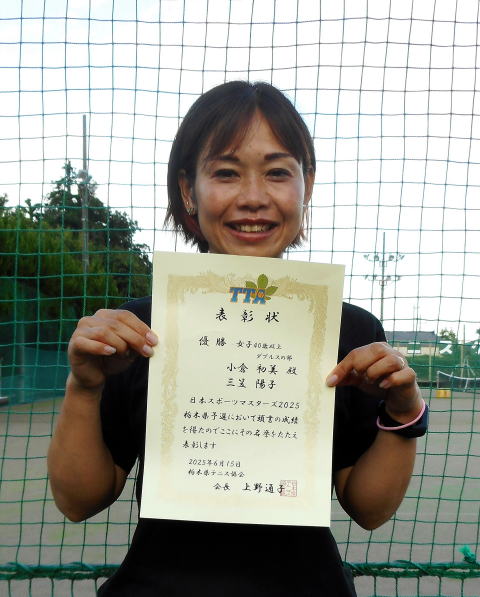 TTA
表彰状
優勝 女子40歳以上
ダブルスの部
小倉 和美 殿
三笠 陽子
日本スポーツマスターズ2025
栃木県予選において頭書の成績
を得たのでここにその名誉をたたえ
表彰します
2025年6月15日
栃木県テニス協会
会長 上野通子